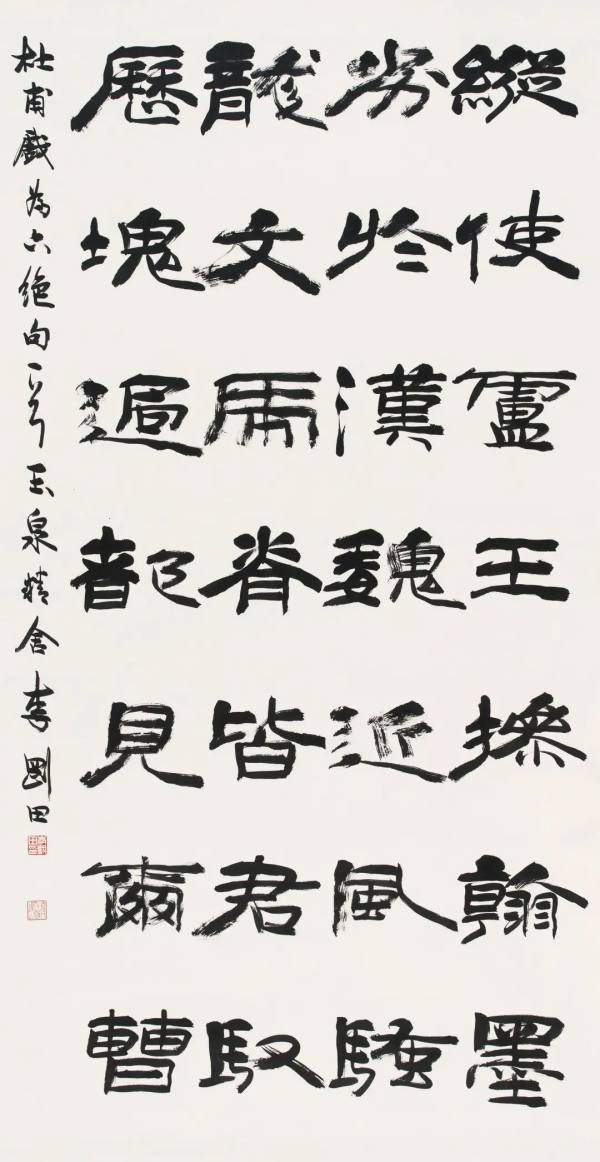 縱使盧王操翰墨
劣於漢魏近風騷
龍文虎脊皆君馭
歷塊過都見爾曹
杜甫戲為六絕句一首玉泉精舍李剛田